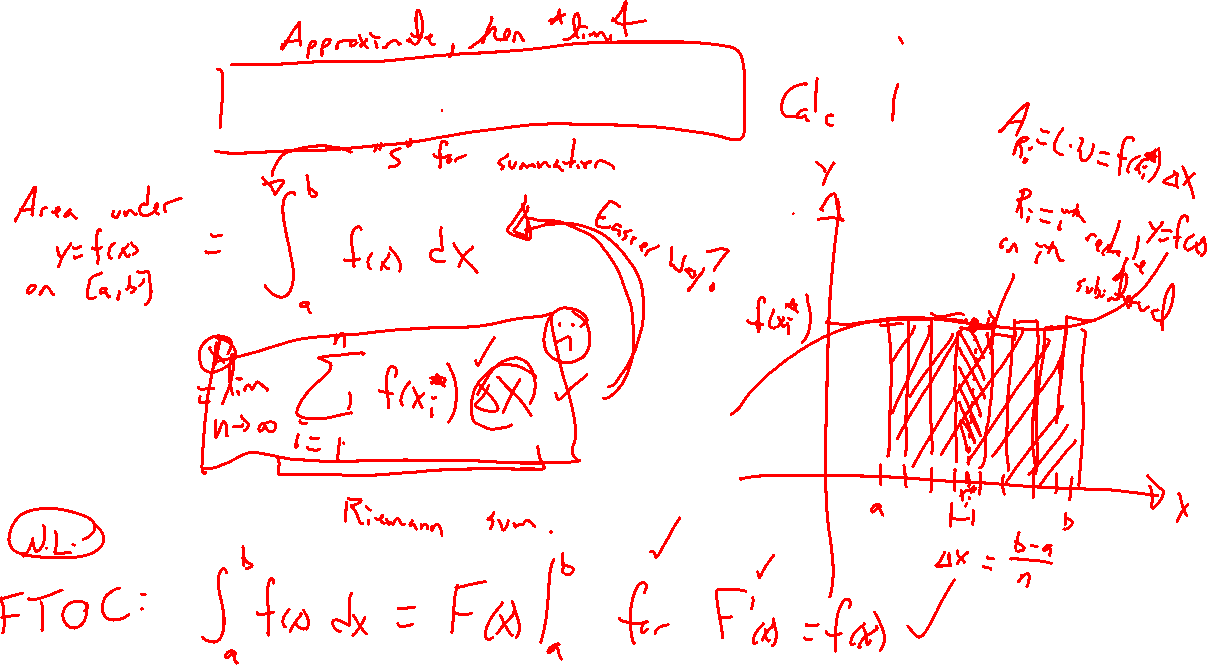 Approximate, then "limit"
Calc 1
"S" for summation
Area under
y=f(x)
on [a,b]
= ∫_a^b f(x) dx
Easier way?
= lim n→∞ Σ_{i=1}^n f(x_i^*) Δx
Riemann sum.
A_{R_i} = L·W = f(x_i^*) Δx
R_i = i^th rectangle
on i^th
subinterval
y=f(x)
Y
f(x_i^*)
a
x_i^*
b
X
Δx = (b-a)/n
N.L.
FTOC: ∫_a^b f(x) dx = F(x) |_a^b for F'(x) = f(x)